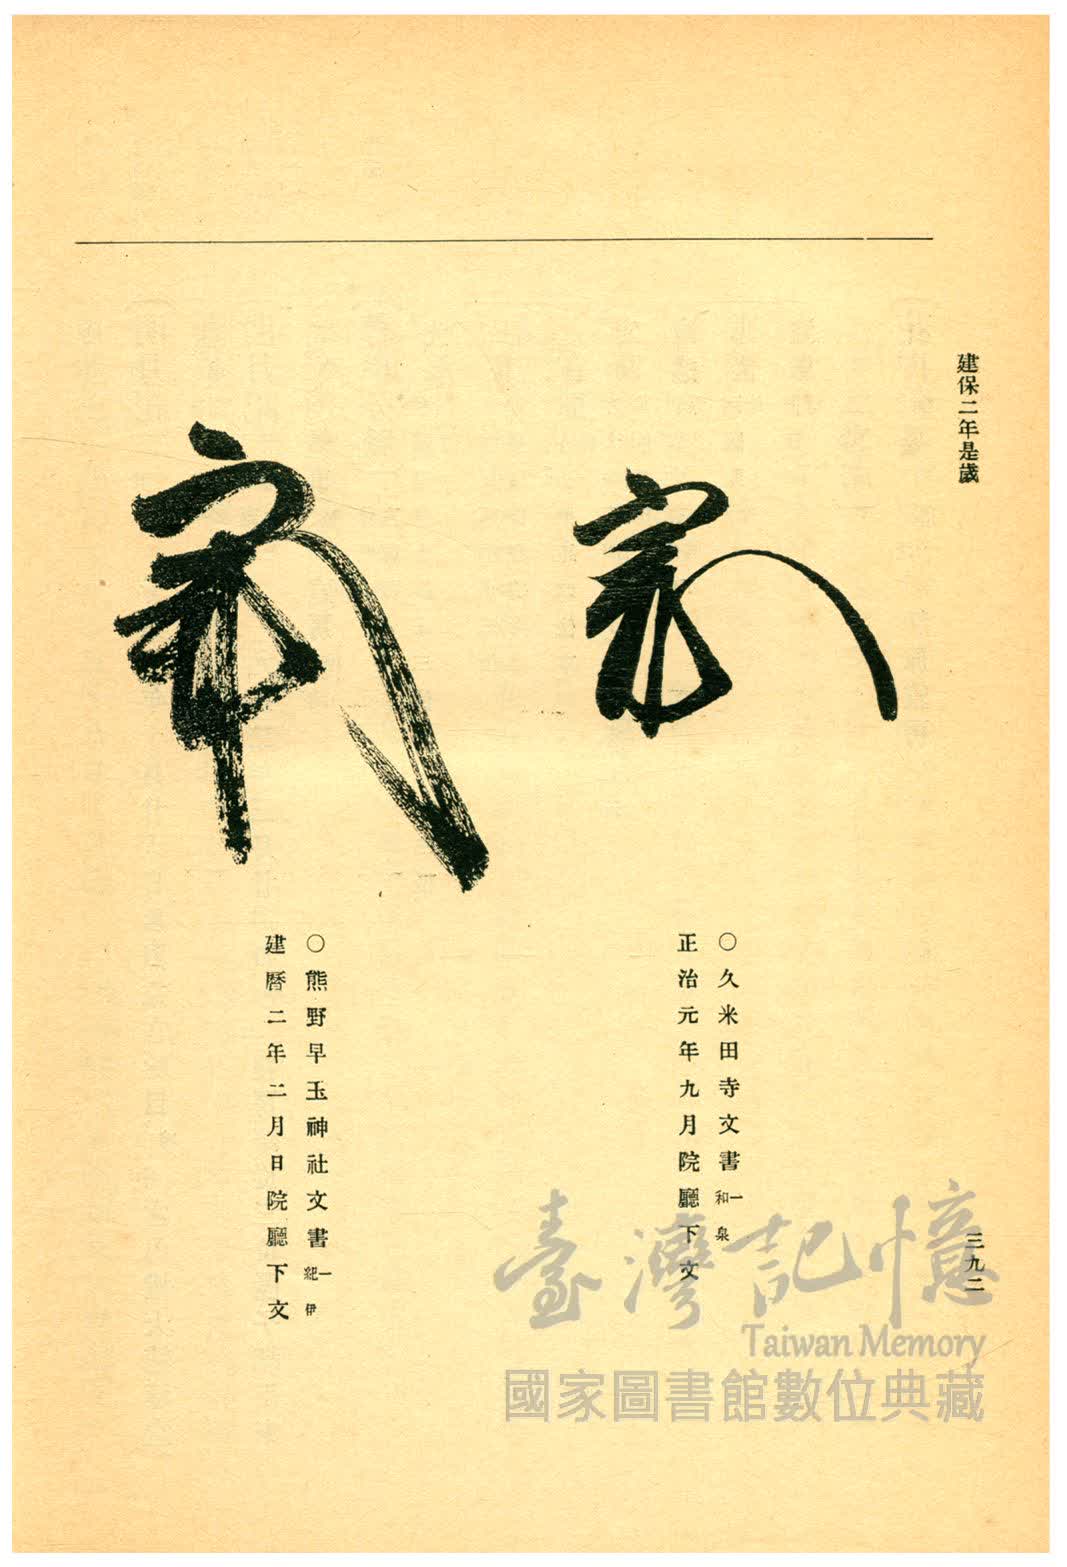 建保二年是歲
三九二
○久米田寺文書 一 和泉
正治元年九月院廳下文
○熊野早玉神社文書 一 紀伊
建曆二年二月日院廳下文
臺灣記憶
Taiwan Memory
國家圖書館數位典藏